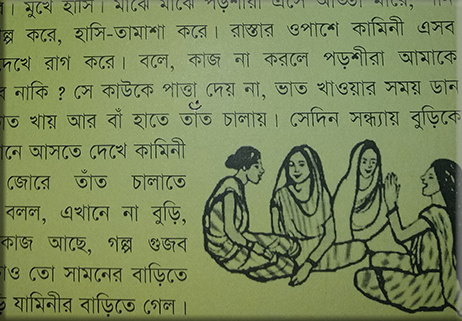 । মুখে হাসি। মাঝে মাঝে পড়শীরা এসে আড্ডা মারে,
করে, হাসি-তামাশা করে। রাস্তার ওপাশে কামিনী এসব
দেখে রাগ করে। বলে, কাজ না করলে পড়শীরা আমাকে
নাকি ? সে কাউকে পাত্তা দেয় না, ভাত খাওয়ার সময় ডান
খায় আর বাঁ হাতে তাঁত চালায়। সেদিন সন্ধ্যায় বুড়িকে
আসতে দেখে কামিনী
জোরে তাঁত চালাতে
বলল, এখানে না বুড়ি,
কাজ আছে, গল্প গুজব
তো সামনের বাড়িতে
যামিনীর বাড়িতে গেল।